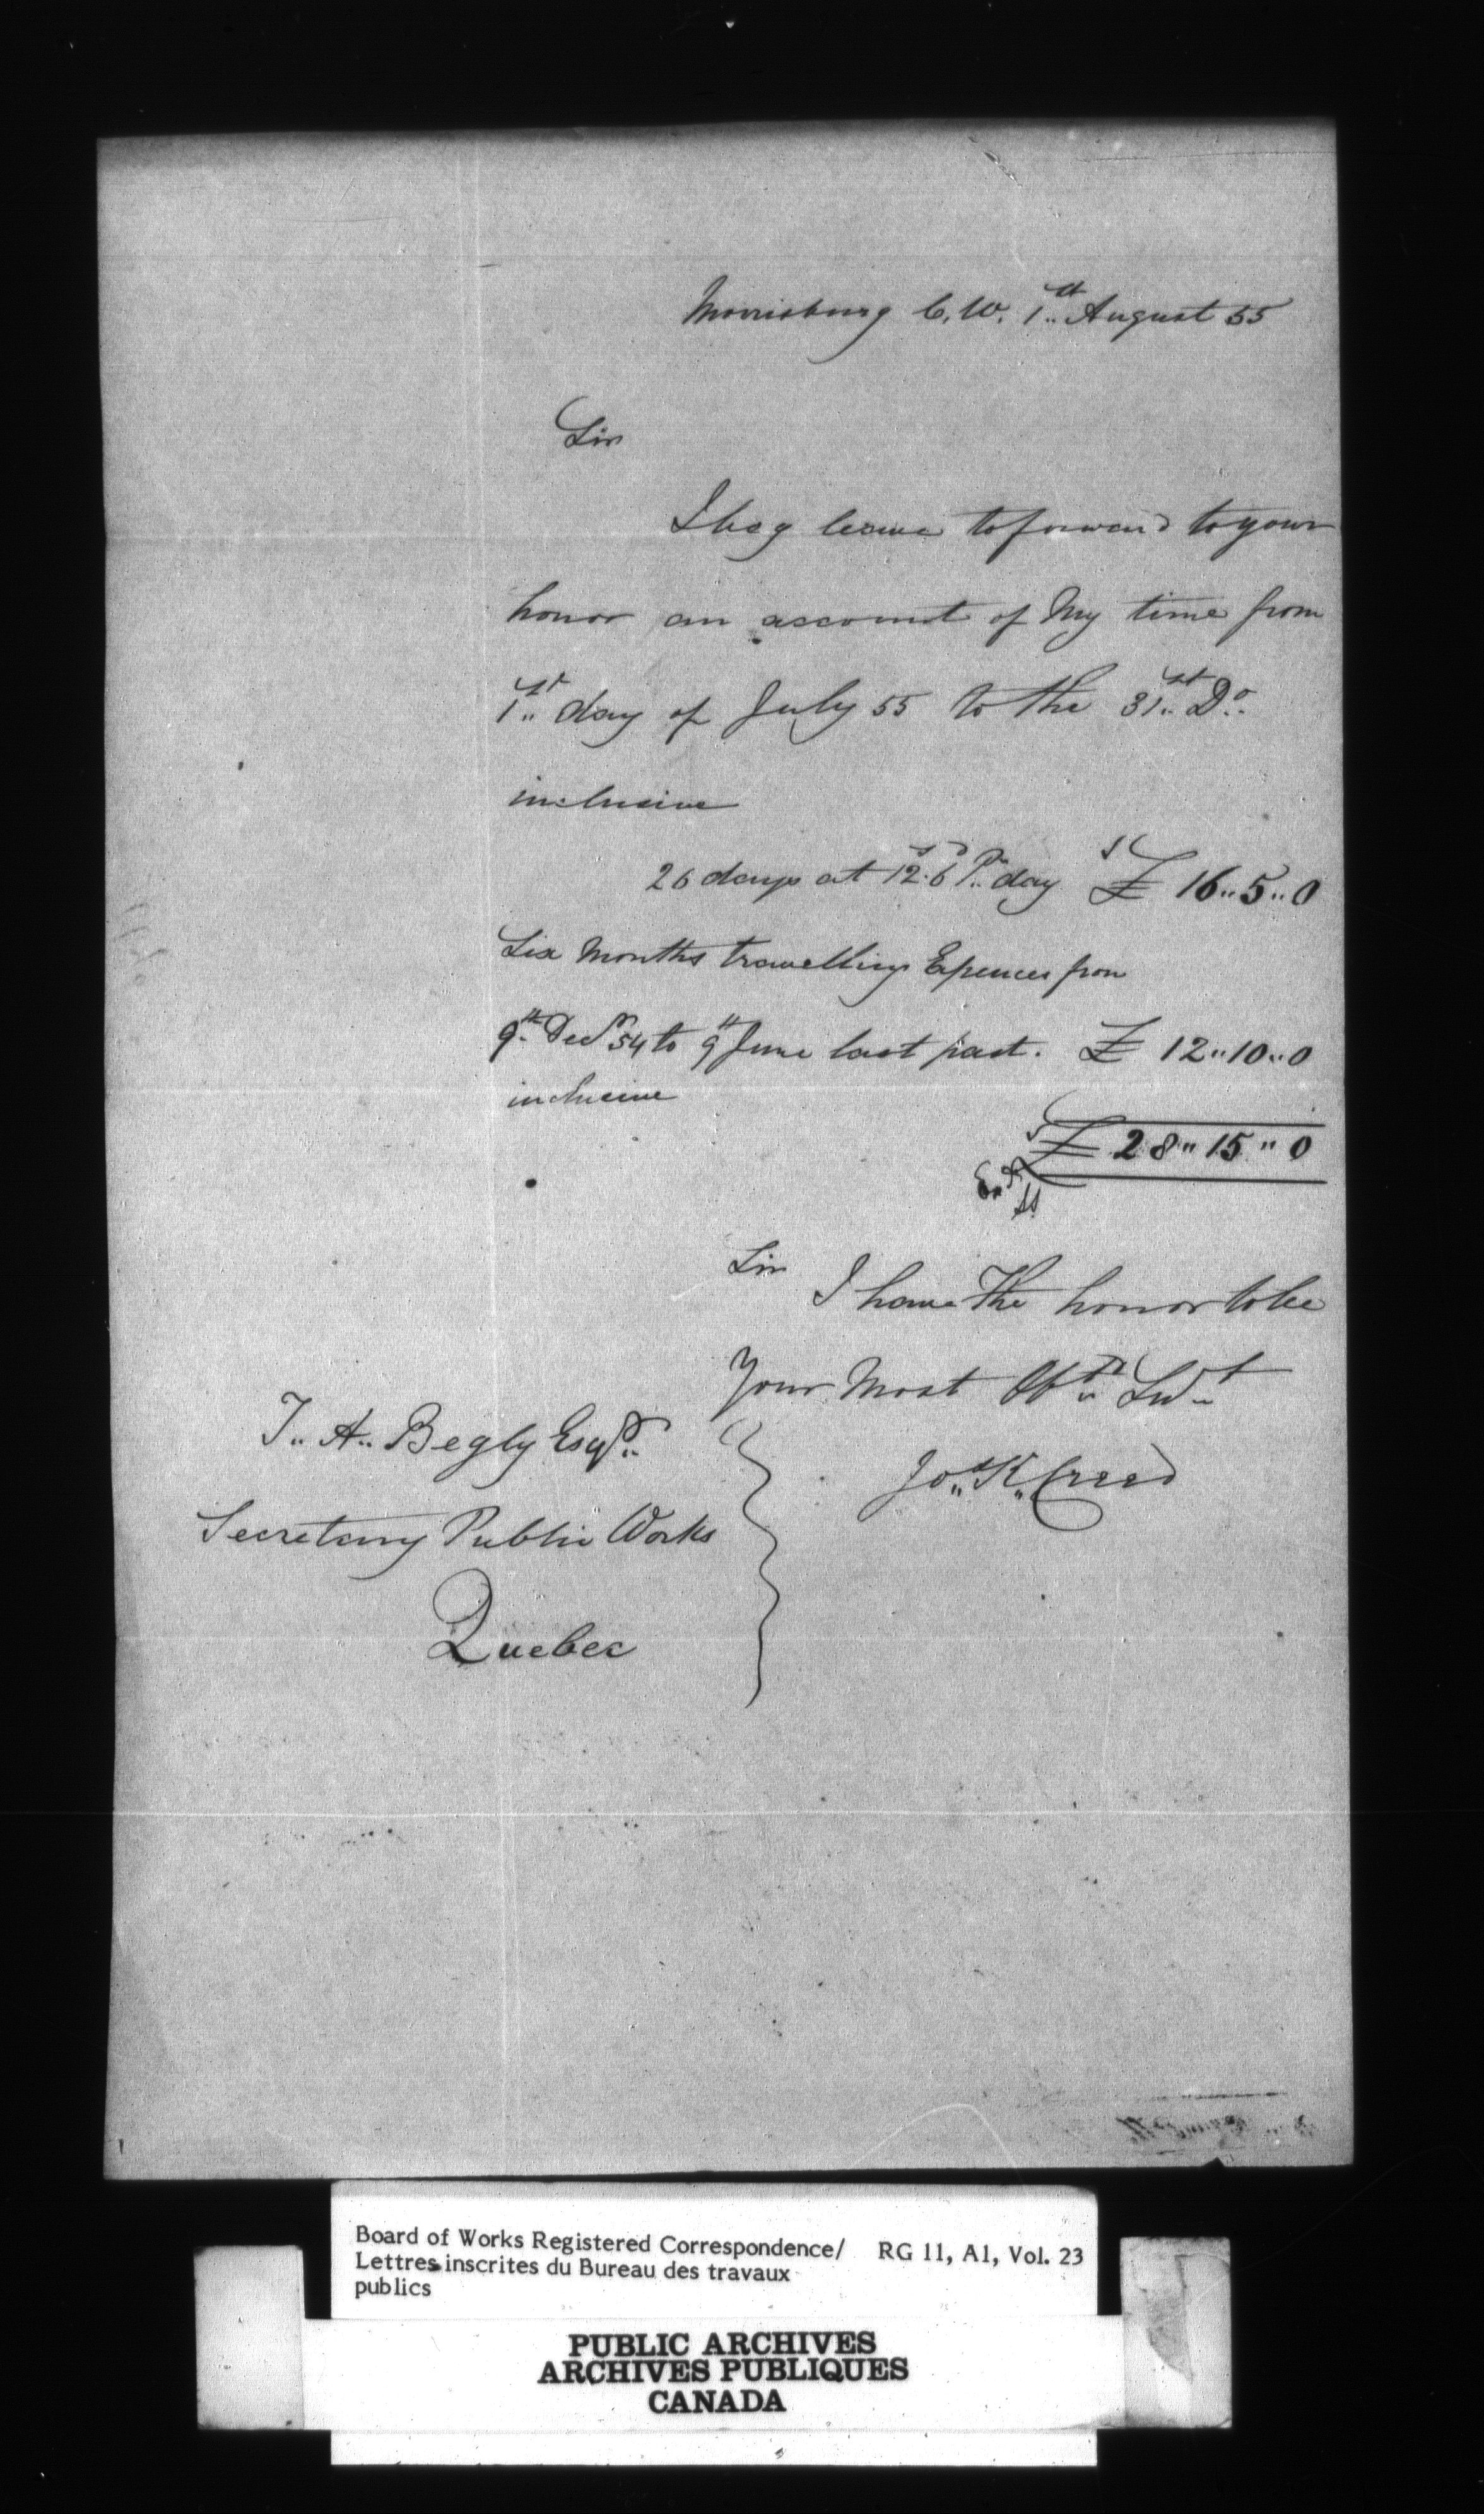 Morrisburg C.W. 1st August 55
Sir
I beg leave to forward to your
honor an account of My time from
1st day of July 55 to the 31st Do
inclusive
26 days at 12s.6d Pr day £ 16"5"0
Six Months travelling Expences from
9th Decr 54 to 9th June last past. £ 12"10"0
inclusive
£ 28"15"0
Sir
I have the honor to be
Your Most Obt Servt
Jos K Creed
T.. A.. Begly Esqr
Secretary Public Works
Quebec
Board of Works Registered Correspondence/ RG 11, A1, Vol. 23
Lettres inscrites du Bureau des travaux
publics
PUBLIC ARCHIVES
ARCHIVES PUBLIQUES
CANADA